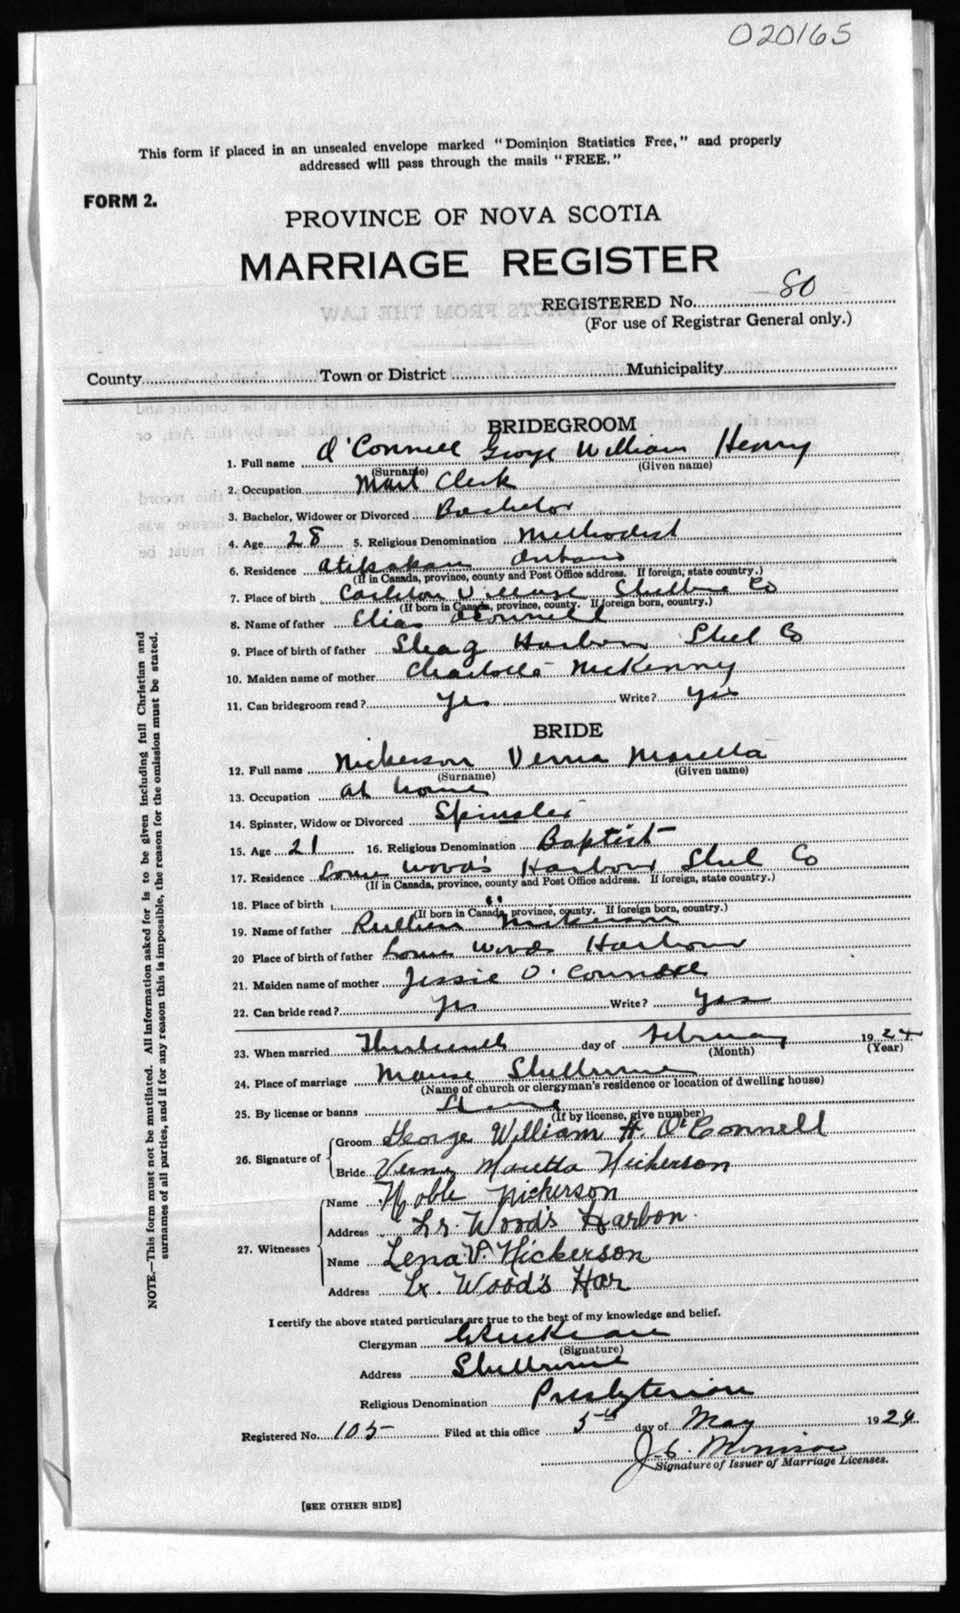 020165
This form if placed in an unsealed envelope marked "Dominion Statistics Free," and properly
addressed will pass through the mails "FREE."
FORM 2.
PROVINCE OF NOVA SCOTIA
MARRIAGE REGISTER
REGISTERED No. 80
(For use of Registrar General only.)
County Town or District Municipality
BRIDEGROOM
1. Full name O'Connell George William Henry
(Surname) (Given name)
2. Occupation Mail Clerk
3. Bachelor, Widower or Divorced Bachelor
4. Age 28 5. Religious Denomination Methodist
6. Residence Atikokan Ontario
(If in Canada, province, county and Post Office address. If foreign, state country.)
7. Place of birth Carleton Village Shelburne Co
(If born in Canada, province, county. If foreign born, country.)
8. Name of father Elias O'Connell
9. Place of birth of father Shag Harbour Shel Co
10. Maiden name of mother Charlotte McKenny
11. Can bridegroom read? Yes Write? Yes
BRIDE
12. Full name Nickerson Verna Maretta
(Surname) (Given name)
13. Occupation at home
14. Spinster, Widow or Divorced Spinster
15. Age 21 16. Religious Denomination Baptist
17. Residence Lower Wood's Harbour Shel Co
(If in Canada, province, county and Post Office address. If foreign, state country.)
18. Place of birth "
(If born in Canada, province, county. If foreign born, country.)
19. Name of father Nickerson
20 Place of birth of father Lower Woods Harbour
21. Maiden name of mother Jessie O'Connell
22. Can bride read? Yes Write? Yes
23. When married Thirteenth day of February 1924
(Month) (Year)
24. Place of marriage Manse Shelburne
(Name of church or clergyman's residence or location of dwelling house)
25. By license or banns
(If by license, give number)
26. Signature of
Groom George William H. O'Connell
Bride Verna Maretta Nickerson
27. Witnesses
Name Noble Nickerson
Address Lr. Wood's Harbor.
Name Lena V. Nickerson
Address Lr. Wood's Har
I certify the above stated particulars are true to the best of my knowledge and belief.
Clergyman
(Signature)
Address Shelburne
Religious Denomination Presbyterian
Registered No. 105 Filed at this office 5th day of May 1924
J. C. Morrison
Signature of Issuer of Marriage Licenses.
[SEE OTHER SIDE]
NOTE.—This form must not be mutilated. All information asked for is to be given including full Christian and
surnames of all parties, and if for any reason this is impossible, the reason for the omission must be stated.